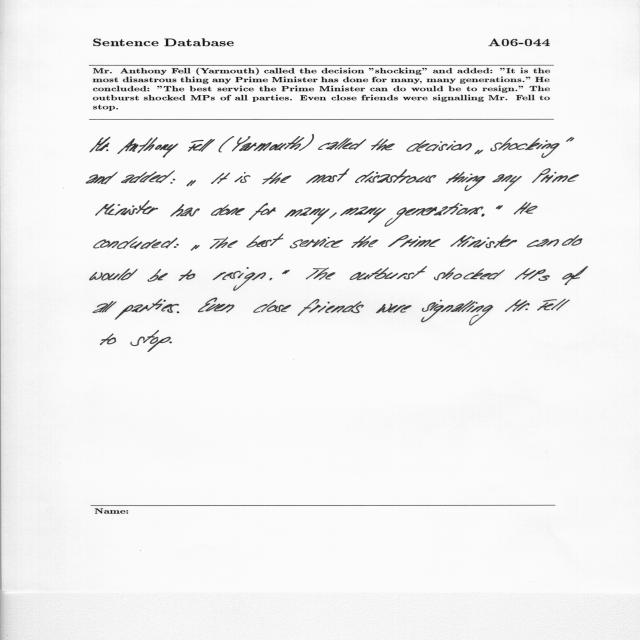 Sentence Database A06-044
Mr. Anthony Fell (Yarmouth) called the decision "shocking" and added: "It is the
most disastrous thing any Prime Minister has done for many, many generations." He
concluded: "The best service the Prime Minister can do would be to resign." The
outburst shocked MPs of all parties. Even close friends were signalling Mr. Fell to
stop.
Mr. Anthony Fell (Yarmouth) called the decision „shocking"
and added: „It is the most disastrous thing any Prime
Minister has done for many, many generations." He
concluded: „The best service the Prime Minister can do
would be to resign." The outburst shocked MPs of
all parties. Even close friends were signalling Mr. Fell
to stop.
Name: